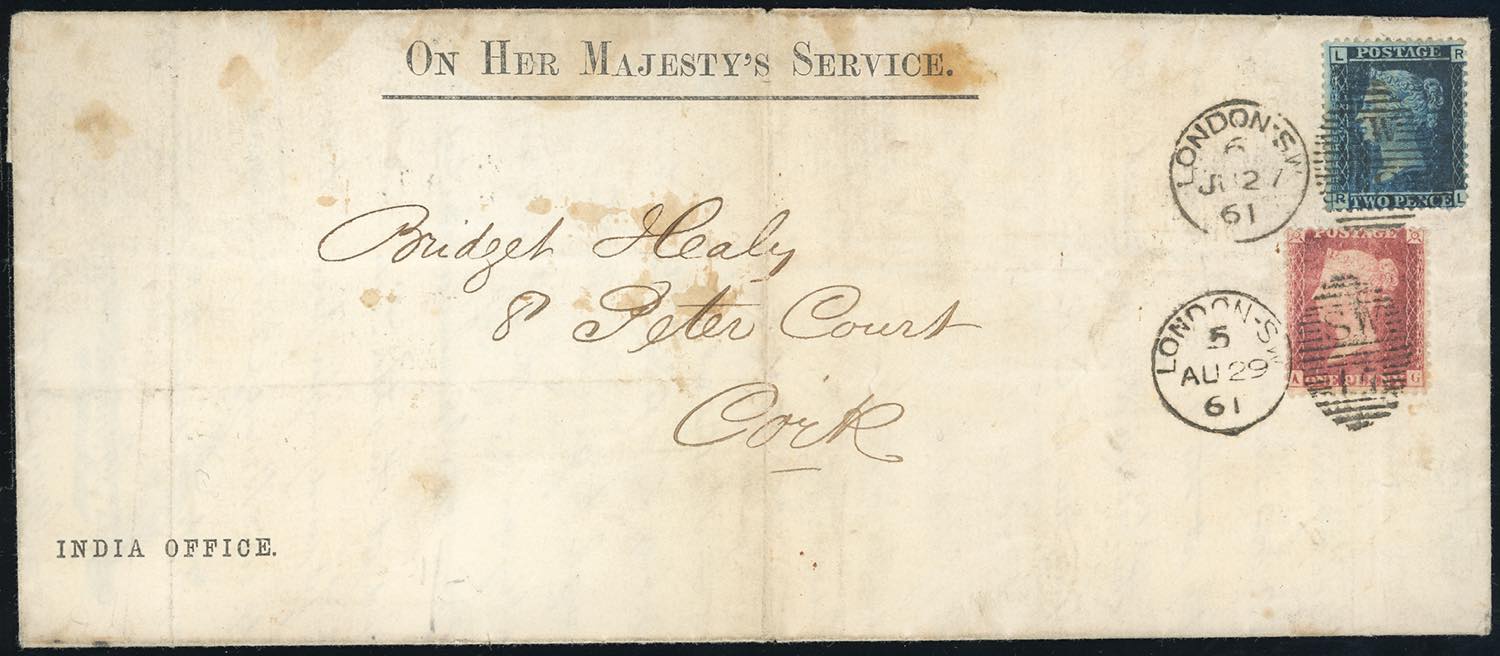 On Her Majesty's Service.
L POSTAGE R
W
R TWO PENCE L
LONDON-SW
6
JU 27
61
Bridget Healy
8 Peter Court
Cork
POSTAGE
LONDON-SW
5
AU 29
61
SW
A ONE PENNY G
INDIA OFFICE.